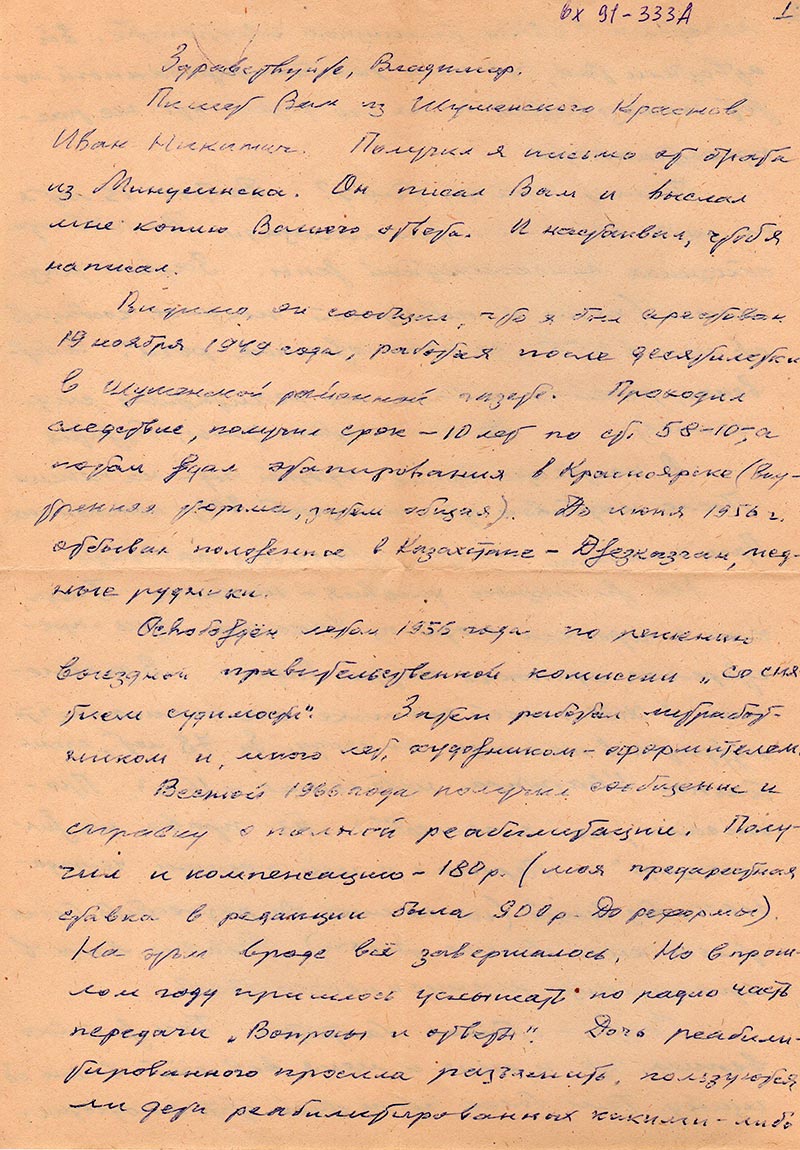 вх 91-333А 1
Здравствуйте, Владимир.
Пишет Вам из Шушенского Краснов
Иван Никитич. Получил я письмо от брата
из Минусинска. Он писал Вам и выслал
мне копию Вашего ответа. И настаивал, чтоб я
написал.
Видимо, он сообщил, что я был арестован
19 ноября 1949 года, работая после десятилетки
в Шушенской районной газете. Проходил
следствие, получил срок – 10 лет по ст. 58-10, а
потом ждал этапирования в Красноярске (Вну-
тренняя тюрьма, затем общая). До июня 1956 г.
отбывал положенное в Казахстане – Джезказган, мед-
ные рудники.
Освобождён летом 1956 года по решению
выездной правительственной комиссии „со сня-
тием судимости". Затем работал литработ-
ником и, много лет, художником-оформителем.
Весной 1966 года получил сообщение и
справку о полной реабилитации. Полу-
чил и компенсацию – 180 р. (моя предарестная
ставка в редакции была 900 р. До реформы).
На этом вроде всё завершалось. Но в прош-
лом году пришлось услышать по радио часть
передачи „Вопросы и ответы". Дочь реабили-
тированного просила разъяснить, пользуются
ли дети реабилитированных какими-либо